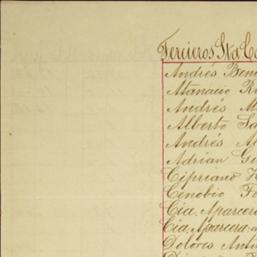 Tercieros Sta Ca
Andrés Beni
Atanacio R
Andrés M
Alberto Sa
Andrés A
Adrian G
Cipriano H
Cenobio F
Cia Aparcera
Cia Aparcera
Dolores Ant